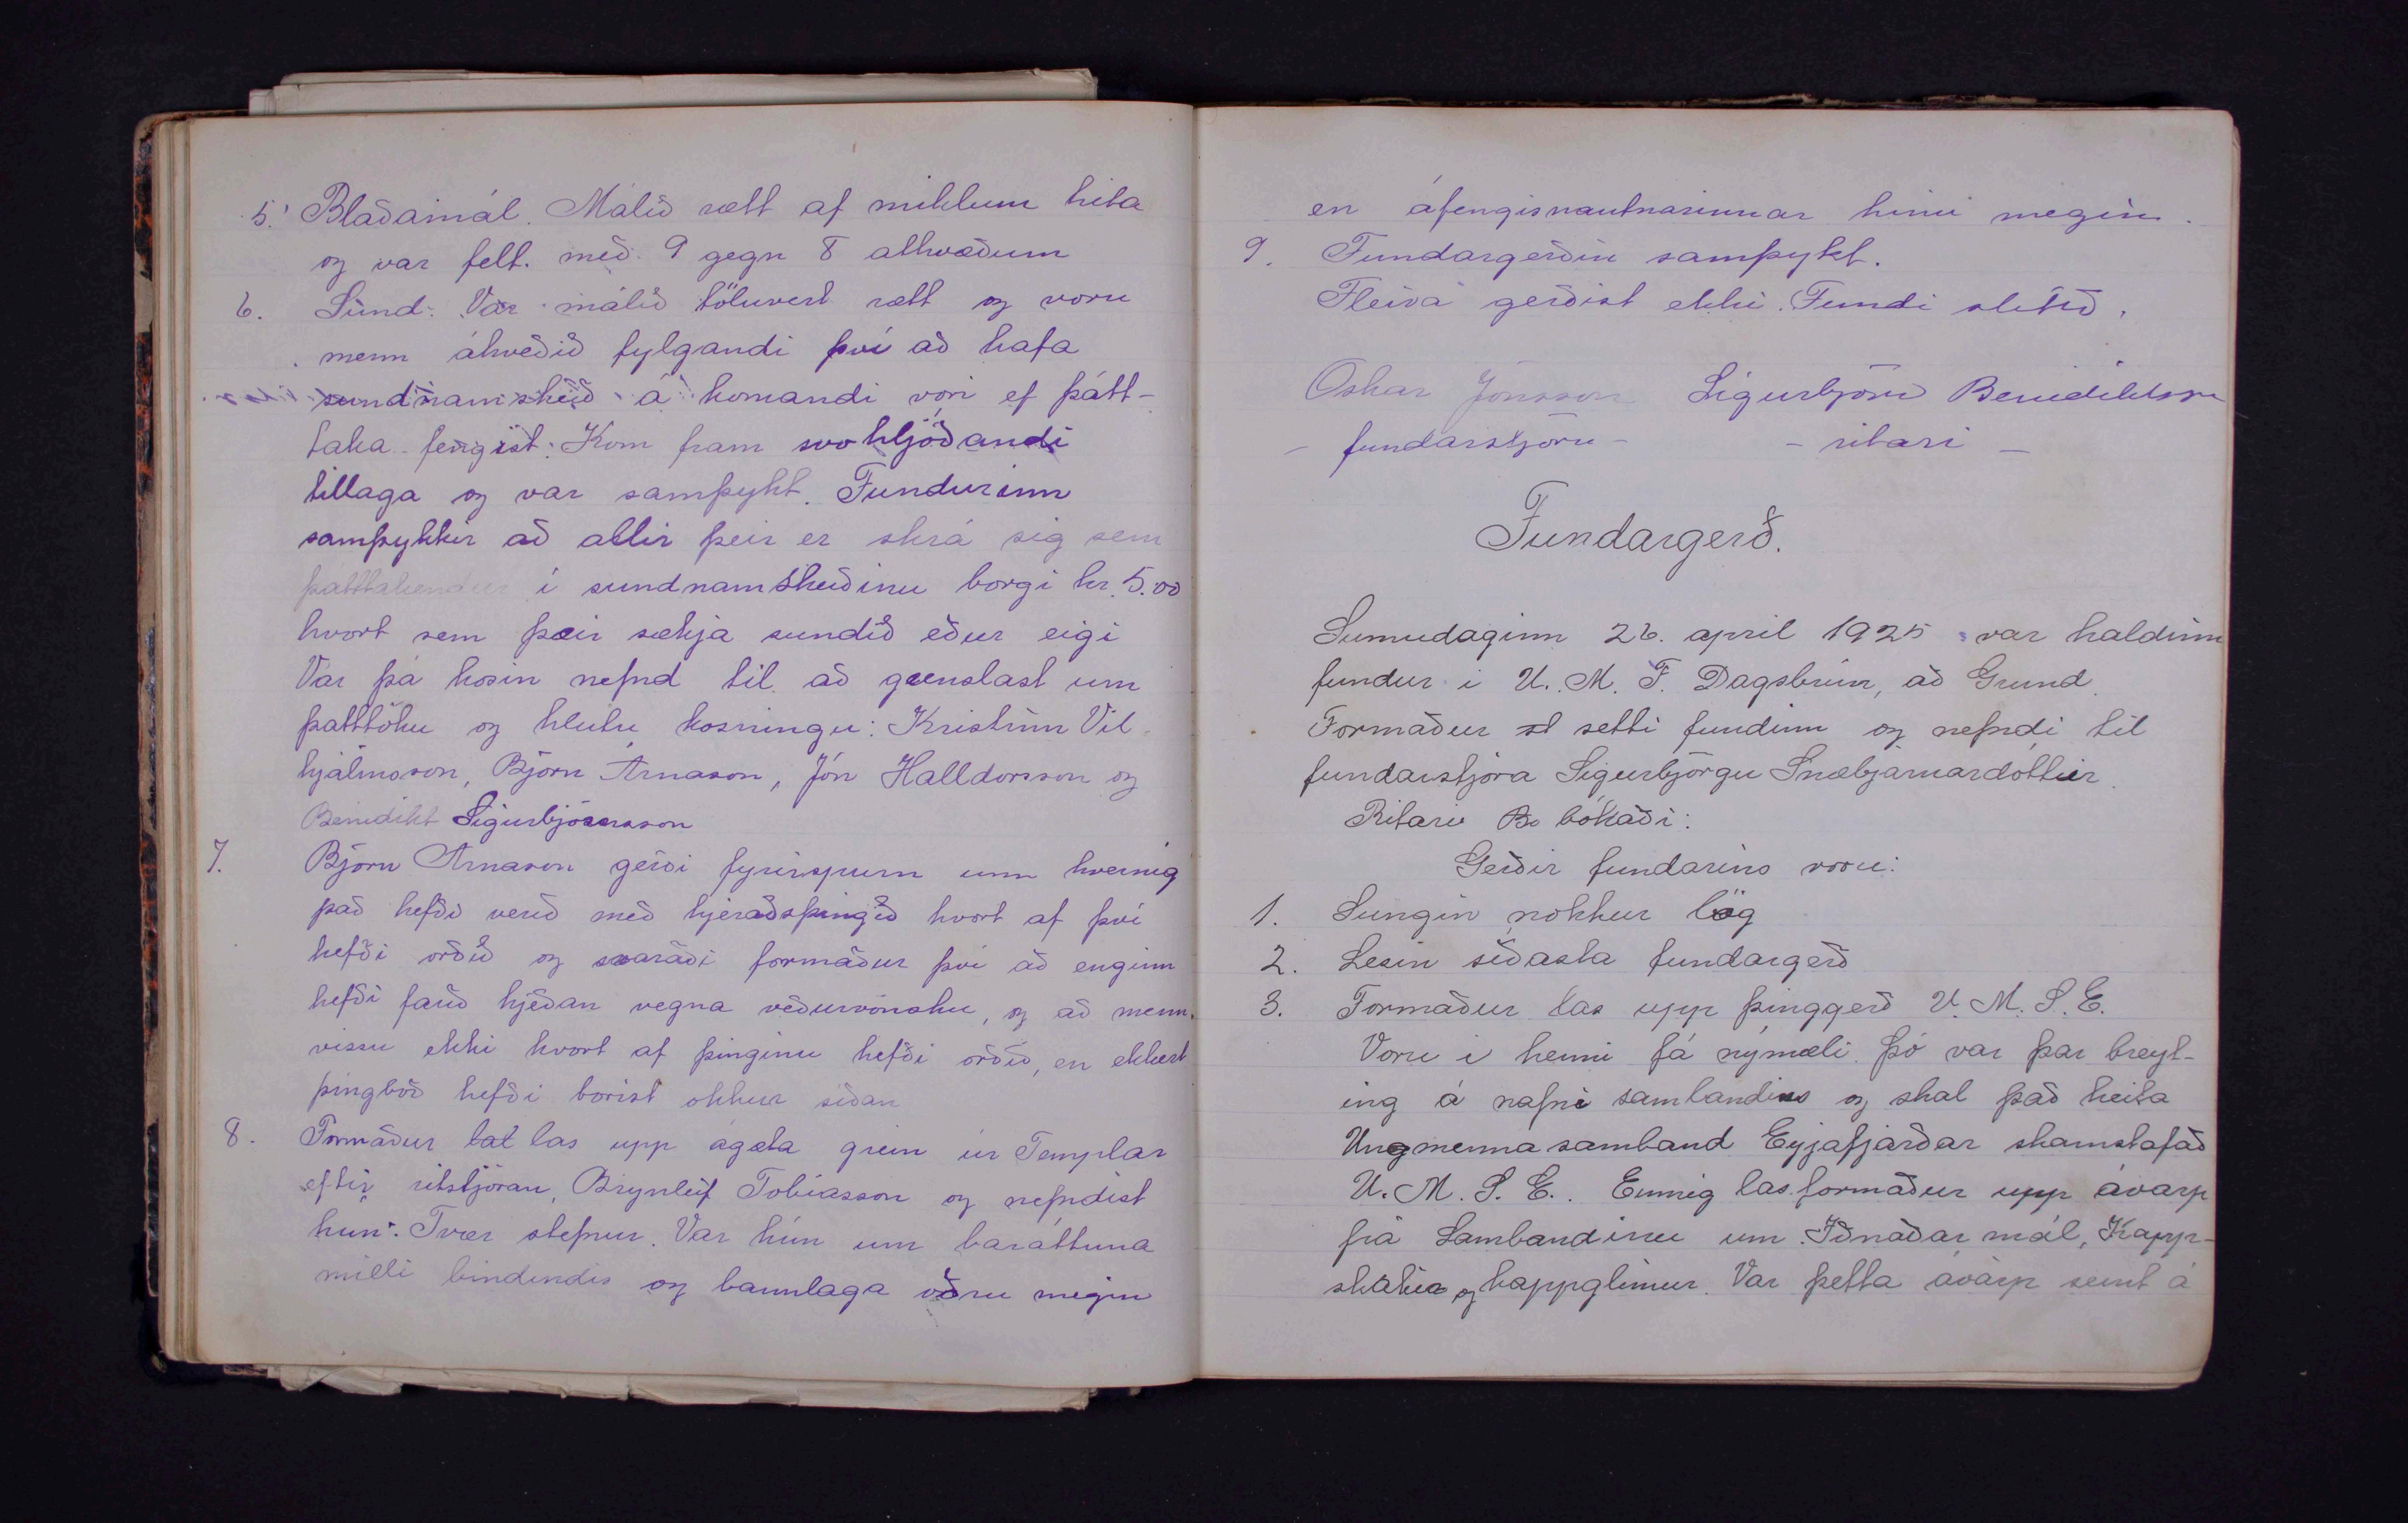 5. Blaðamál. Málið rætt af miklum hita
og var felt. með 9 gegn 8 atkvæðum
6. Sund. Var málið töluvert rætt og voru
menn ákveðið fylgandi því að hafa
sundnámskeið á komandi vori ef þátt-
taka fengist. Kom fram svohljóðandi
tillaga og var samþykt. Fundurinn
samþykkir að allir þeir er skrá sig sem
þátttakendur í sundnamskeiðinu borgi kr. 5.00
hvort sem þeir sækja sundið eður eigi
Var þá kosin nefnd til að grenslast um
þatttöku og hlutu kosningu: Kristinn Vil-
hjálmsson, Björn Árnason, Jón Halldorsson og
Benidikt Sigurbjörnsson
7. Björn Arnason gerði fyrirspurn um hvernig
það hefði verið með hjeraðsþingið hvort af því
hefði orðið og svaraði formaður því að enginn
hefði farið hjeðan vegna veðurvonsku, og að menn
vissu ekki hvort af þinginu hefði orðið, en ekkert
þingboð hefði borist okkur siðan
8. Formaður lat las upp ágæta grein úr Templar
eftir ritstjóran, Brynleif Tobiasson og nefndist
hun: Tvær stefnur. Var hún um baráttuna
milli bindindis og bannlaga vöru megin
en áfengisnautnarinnar hinu megin.
9. Fundargerðin samþykt.
Fleira gerðist ekki. Fundi slitið.
Oskar Jónsson Sigurbjörn Benidiktsson
- fundarstjóri - - ritari -
Fundargerð.
Sunnudaginn 26. april 1925 var haldinn
fundur i U. M. F. Dagsbrún, að Grund.
Formaður st setti fundinn og nefndi til
fundarstjóra Sigurbjörgu Snæbjarnardóttur.
Ritari Bo bókaði:
Gerðir fundarins voru:
1. Sungin nokkur lög
2. Lesin siðasta fundargerð
3. Formaður las upp þinggerð U. M. S. E.
Voru i henni fá nýmæli. Þó var þar breyt-
ing á nafni sambandins og skal það heita
Ungmennasamband Eyjafjarðar skamstafað
U. M. S. E.. Einnig las formaður upp ávarp
frá Sambandinu um Iðnaðar mál, Kapp-
skákir og kappglimur. Var þetta ávarp sent á